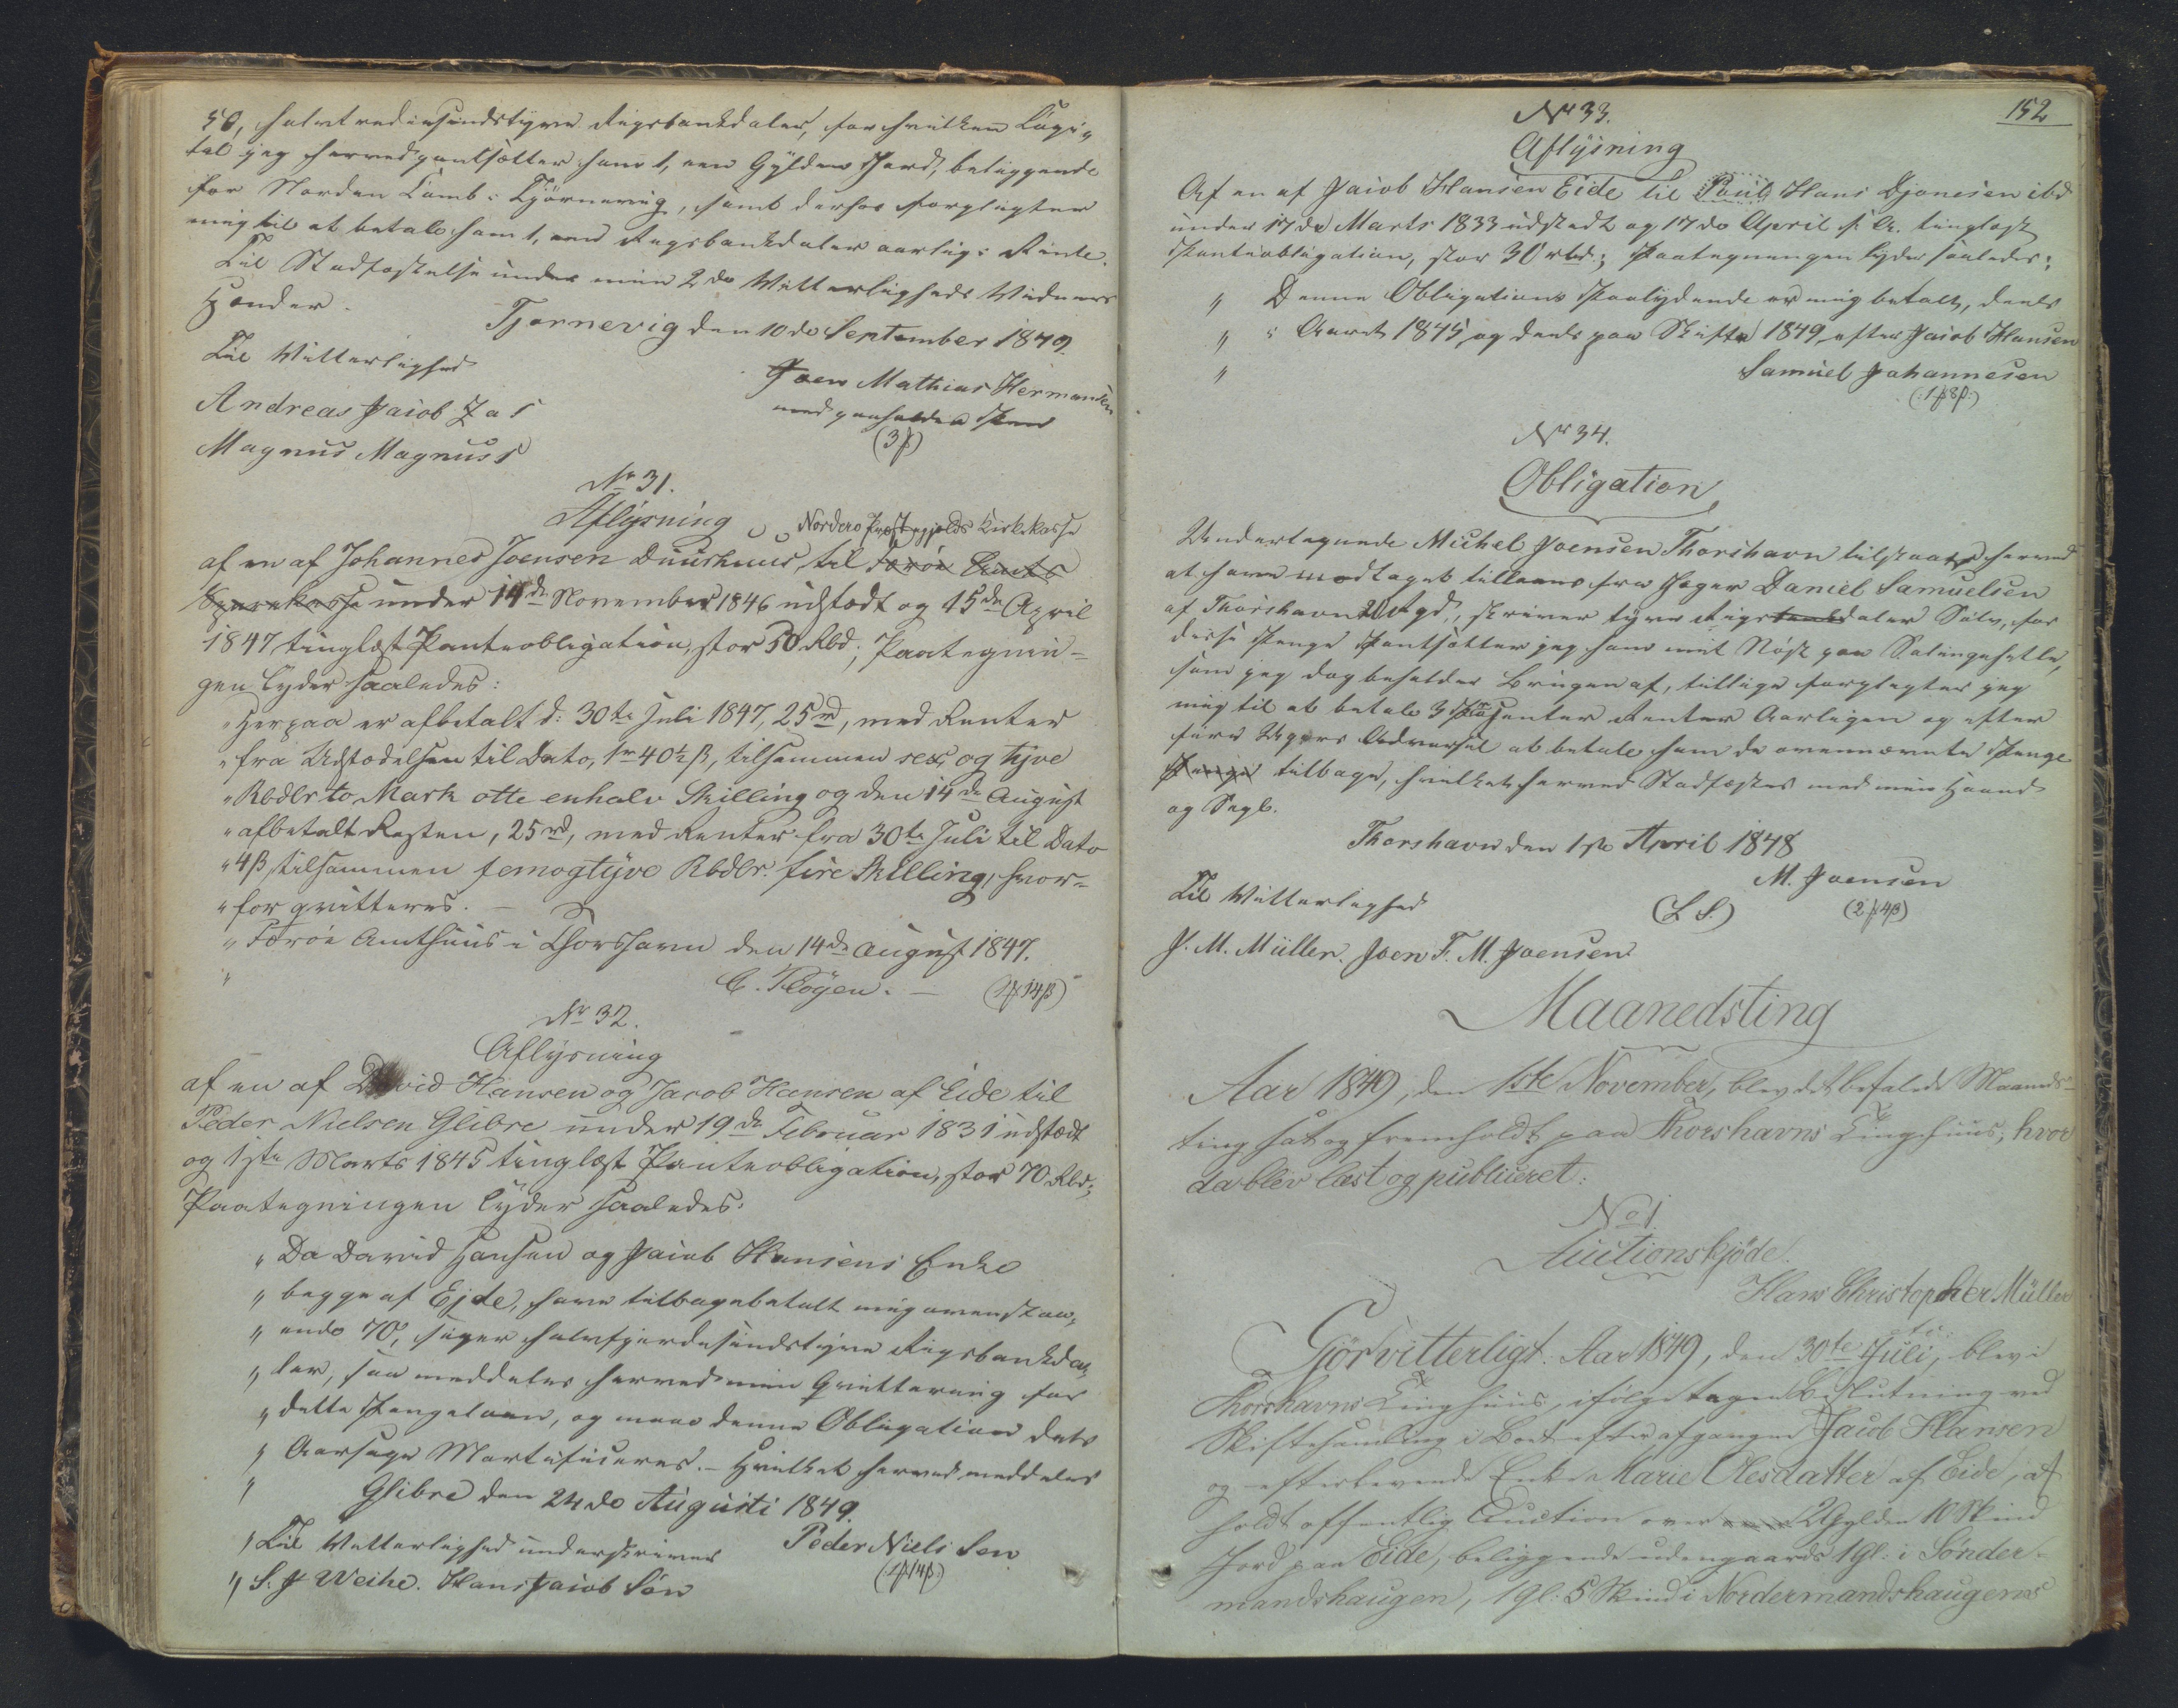 50, halvtredsindstyve Rigsbankdaler, for hvilken Capi-
tal jeg herved pantsætter ham 1, een Gylden Jord, beliggende
for Norden Camb i Tjörnevig, samt derhos forpligter
mig til at betale ham 1, een Rigsbankdaler aarlig i Rente.
Til Stadfæstelse under mine 2de Vitterligheds Vidners
Hænder.
Tjornevig den 10de September 1849.
Til Vitterlighed
Joen Mathias Hermansen
med paaholden Pen
(3ß)
Andreas Jacob Z a S
Magnus Magnus S
Nr 31.
Aflysning
Norderø Præstegjelds Kirkekasse
af en af Johannes Joensen Duushuus, til Færöe Amts
Sparekasse under 14de November 1846 udstædt og 15de April
1847 tinglæst Panteobligation, stor 50 Rbd; Paategnin-
gen lyder saaledes:
"Herpaa er afbetalt d: 30te Juli 1847, 25rd, med Renter
"fra Udstædelsen til Dato, 1r 40½ ß, tilsammen sex og tyve
"Rbdlr to Mark otte enhalv Skilling og den 14de August
"afbetalt Resten, 25rd, med Renter fra 30te Juli til Dato
"4ß tilsammen femogtyve Rbdlr. fire Skilling, hvor-
"for qvitteres.
"Færöe Amthuus i Thorshavn den 14de August 1847.
" C. Pløyen. (1# 14ß)
Nr 32.
Aflysning
af en af David Hansen og Jacob Hansen af Eide til
Peder Nielsen Glibre under 19de Februar 1831 udstædt
og 1ste Marts 1845 tinglæst Panteobligation, stor 70 Rbd;
Paategningen lyder saaledes:
" Da David Hansen og Jacob Hansens Enke
" begge af Ejde, have tilbagebetalt mig ovenstaa-
" ende 70, siger halvfjerdesindstyve Rigsbankda-
" ler, saa meddeles herved min Qvittering for
" dette Pengelaan, og maae denne Obligation dets
" Aarsage Mortificeres. – Hvilket herved meddeles
" Glibre den 24de Augusti 1849.
" Til Vitterlighed underskriver Peder Niels Sen
" S. J Weihe. Hans Jacob Søn (1#14ß)
152
Nr 33.
Aflysning
Af en af Jacob Hansen Eide til Poul Hans Djonesen ibd
under 17de Marts 1833 udstædt og 17de April s. A. tinglæst
Panteobligation, stor 30 rbd; Paategningen lyder saaledes:
" Denne Obligations Paalydende er mig betalt, deels
" i Aaret 1845, og deels paa Skifte 1849, efter Jacob Hansen
" Samuel Johannesen
(:1#8ß:)
Nr 34.
Obligation
Undertegnede Michel Joensen Thorshavn tilstaar herved
at have modtaget tillaans fra Jæger Daniel Samuelsen
af Thorshavn 20 Rgd, skriver tyve Rigsbankdaler Sølv, for
disse Penge Pantsætter jeg ham mit Nøst paa
som jeg dog beholder Brugen af, tillige forpligter jeg
mig til at betale 3 Procenter Renter Aarligen og efter
fiire Ugers Advarsel at betale ham de ovennævnte Penge
Penge tilbage, hvilket herved Stadfæstes med min Haand
og Segl.
Thorshavn den 1ste April 1848
M. Joensen
Til Vitterlighed (L S.) (2#4ß)
J. M. Müller. Joen F. M. Joensen
Maanedsting
Aar 1849, den 1ste November, blev det befalede Maaneds-
ting sat og fremholdt paa Thorshavns Tinghuus, hvor
da blev læst og publiceret:
No 1.
Auctionskjöde.
Hans Christopher Müller
Gjör vitterligt: Aar 1849, den 30te Juli, blev i
Thorshavns Tinghuus, ifølge tagen Beslutning ved
Skiftesamling i Boet efter afgangne Jacob Hansen
og efterlevende Enke Marie Olesdatter af Eide, af
holdt offentlig Auction over 2 Gylden 10 Skind
Jord paa Eide, beliggende udengaards 1 gl: i Sönder-
mandshaugen, 1 gl: 5 Skind i Nordermandshaugenes